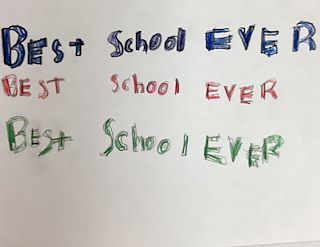 Best School EVER
BEST School EVER
Best School EVER